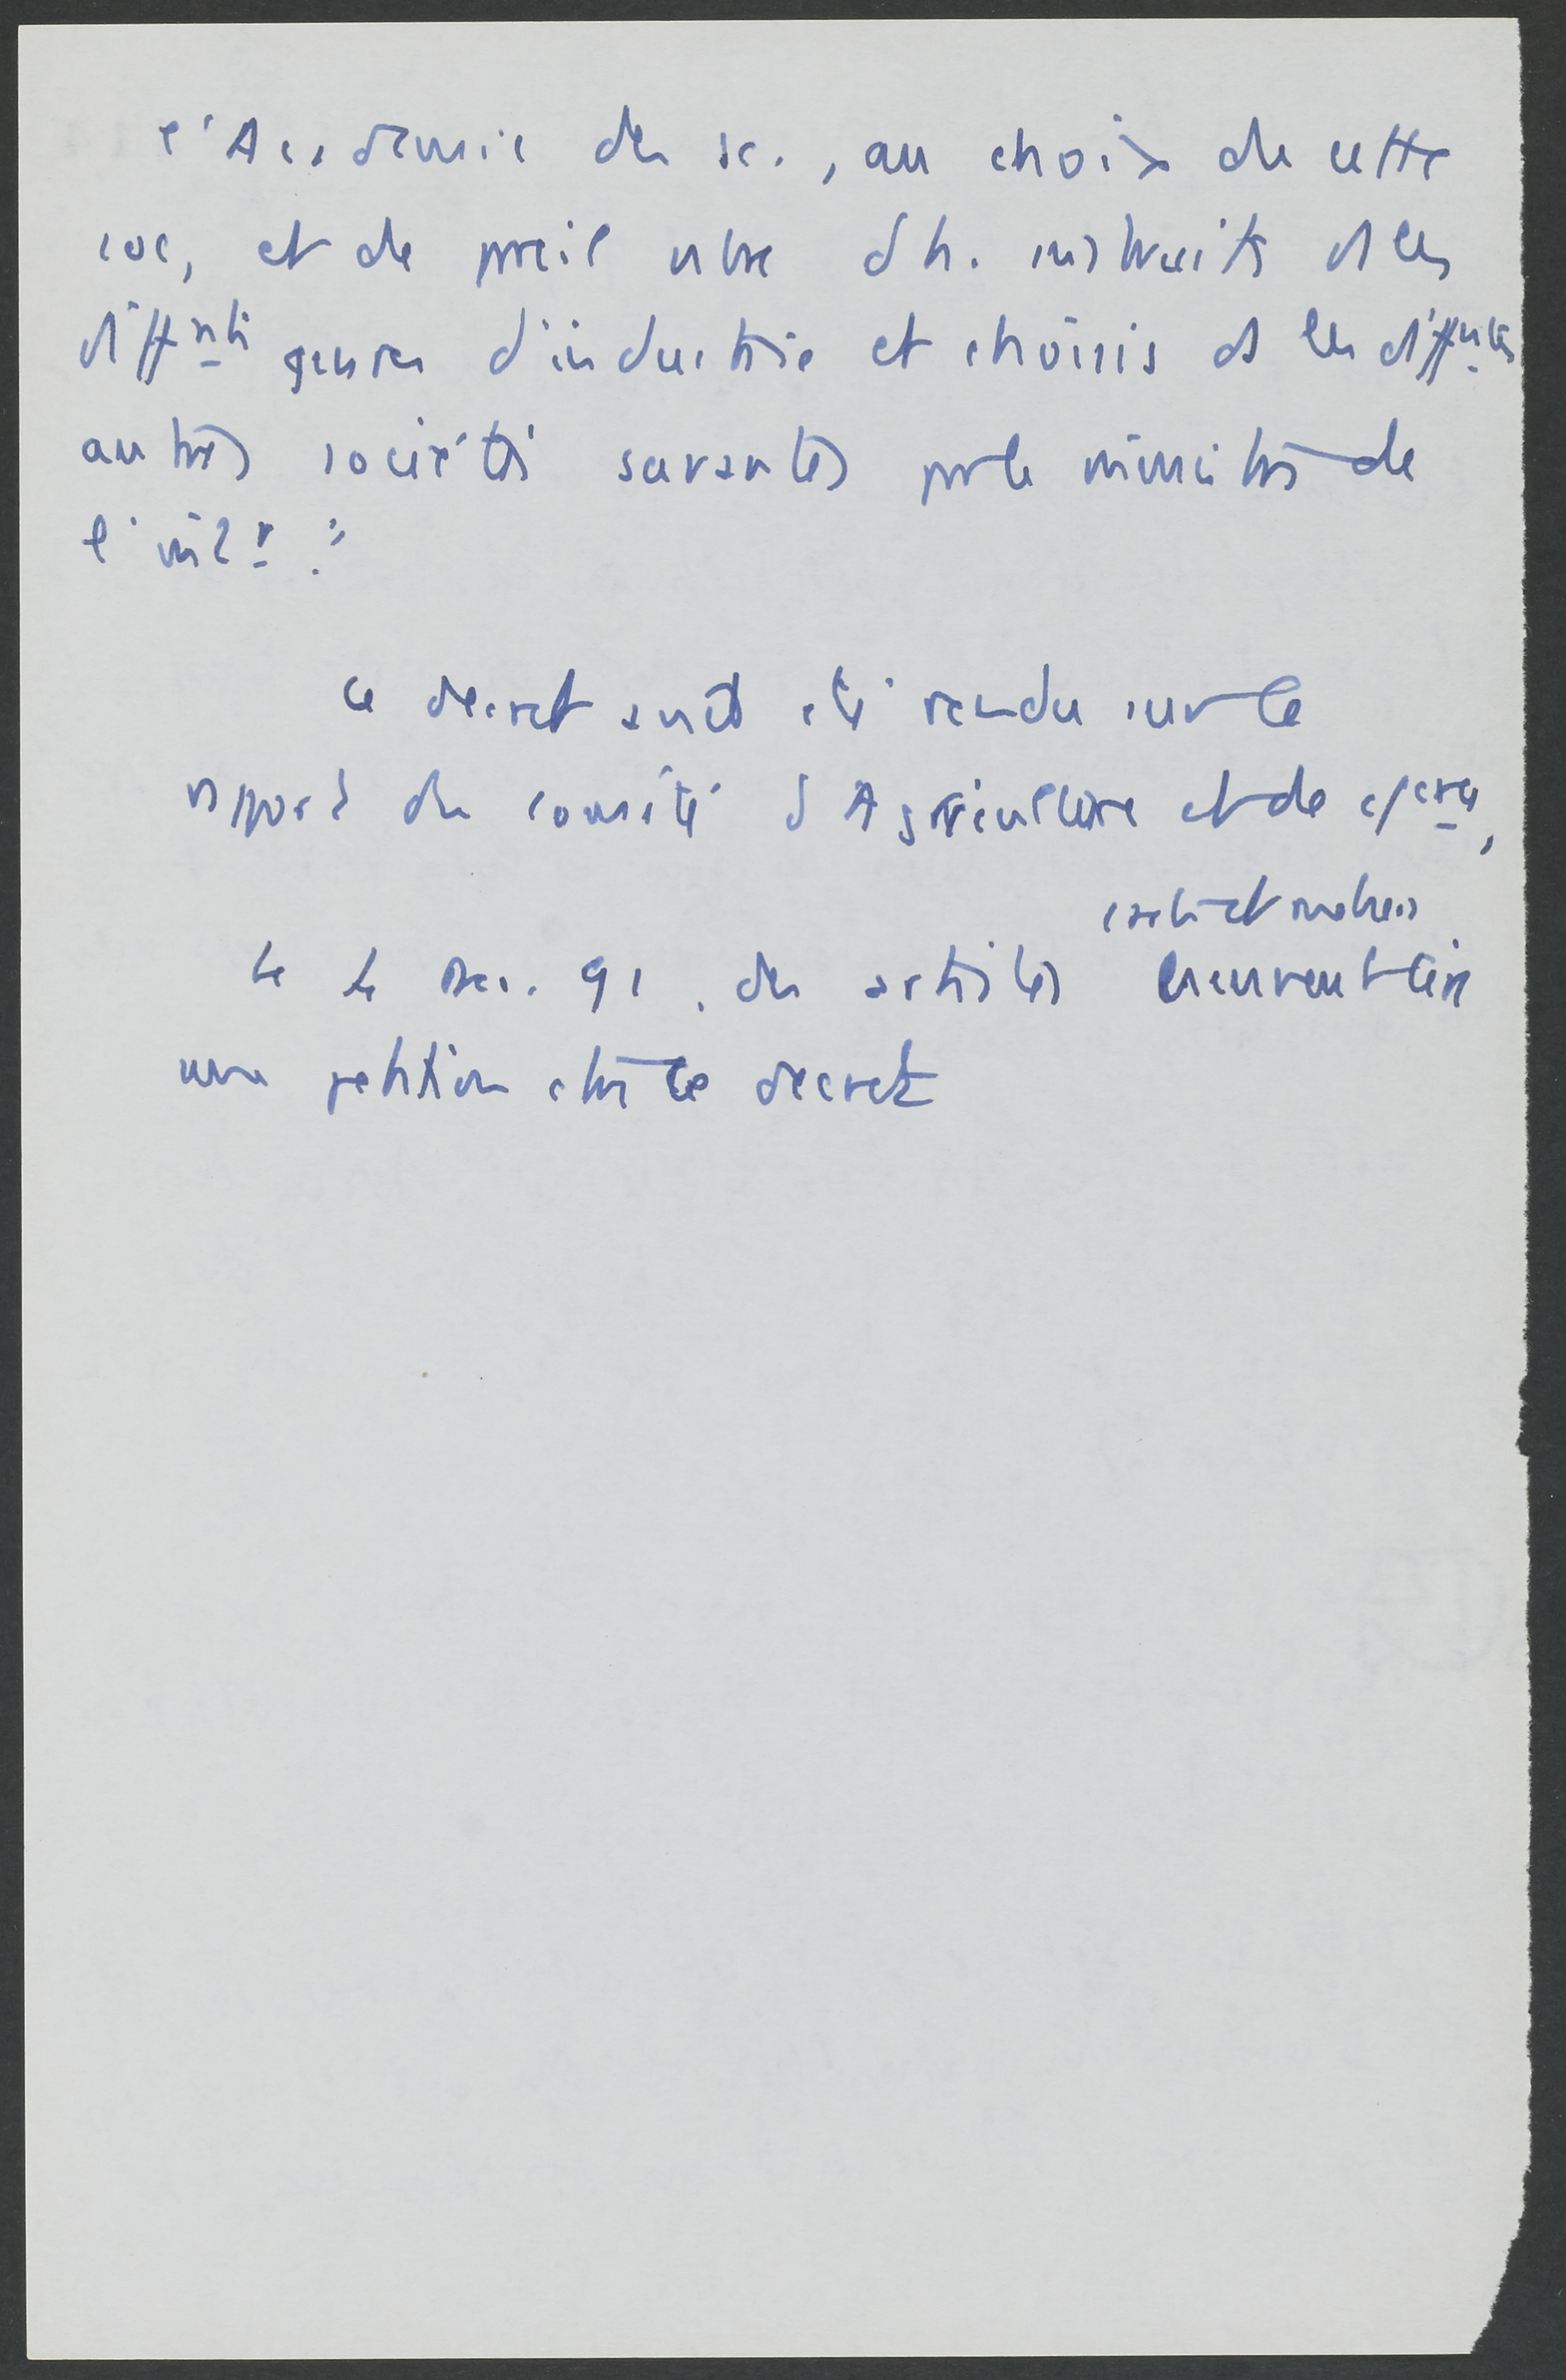 l'Académie des sc., au choix de cette
soc, et de pareil nbre d'h. instruits ds les
diffnts genres d'industrie et choisis ds les diffntes
autres sociétés savantes par le ministre de
l'intr."
Ce décret avait été rendu sur le
rapport du comité d'Agriculture et de cerce,
Le 4 Dec. 91. des artistes
une pétition ctre ce décret